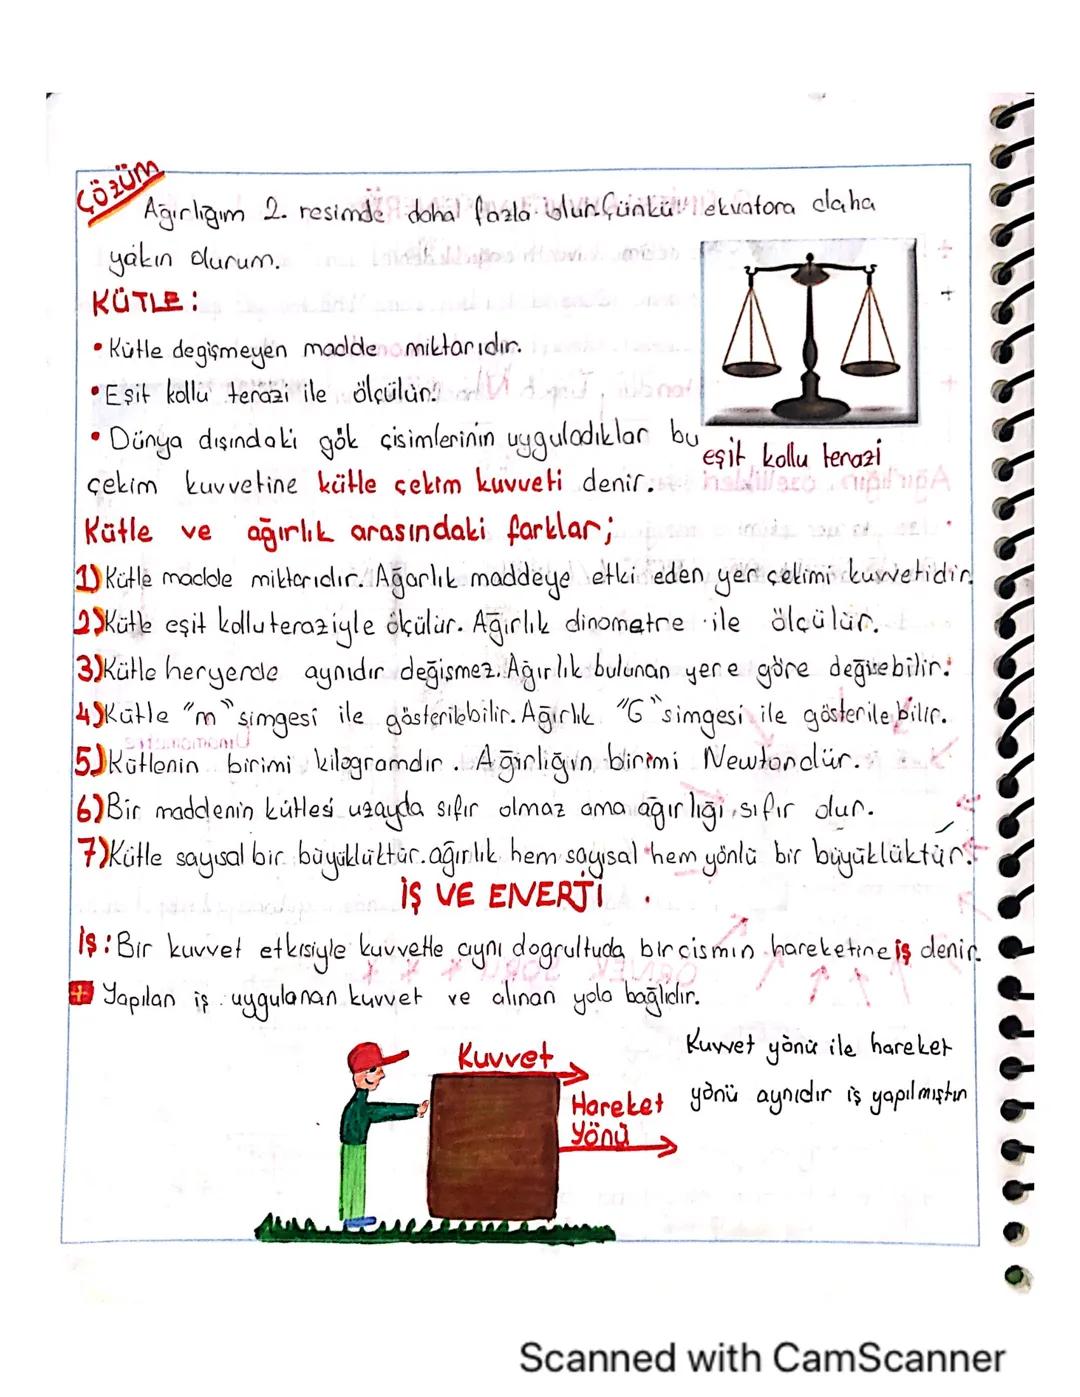 ÇÖZÜM
Ağırlığım 2. resimde daha fazla olur. Çünkü ekvatora daha
yakın olurum.
KÜTLE:
• Kütle değişmeyen madde miktarıdır.
• Eşit kollu terazi ile ölçülür.
• Dünya dışındaki gök cisimlerinin uyguladıklar bu
eşit kollu terazi
çekim kuvvetine kütle çekim kuvveti denir.
Kütle ve ağırlık arasındaki farklar;
1) Kütle madde miktarıdır. Ağarlık maddeye etki eden yer çekimi kuvvetidir.
2) Kütle eşit kollu teraziyle ölçülür. Ağırlık dinometre ile ölçülür.
3) Kütle heryerde aynıdır değişmez. Ağırlık bulunan yere göre değişebilir.
4) Kütle "m" simgesi ile gösterilebilir. Ağırlık "G" simgesi ile gösterilebilir.
5) Kütlenin birimi kilogramdır. Ağırlığın birimi Newtondür.
6) Bir maddenin kütlesi uzayda sıfır olmaz ama ağırlığı sıfır olur.
7) Kütle sayısal bir büyüklüktür. ağırlık hem sayısal hem yönlü bir büyüklüktür.
İŞ VE ENERJİ
İş: Bir kuvvet etkisiyle kuvvetle aynı doğrultuda bir cismin hareketine iş denir.
+ Yapılan iş uygulanan kuvvet ve alınan yola bağlıdır.
Kuvvet
Hareket
Yönü
Kuvvet yönü ile hareket
yönü aynıdır iş yapılmıştır
Scanned with CamScanner